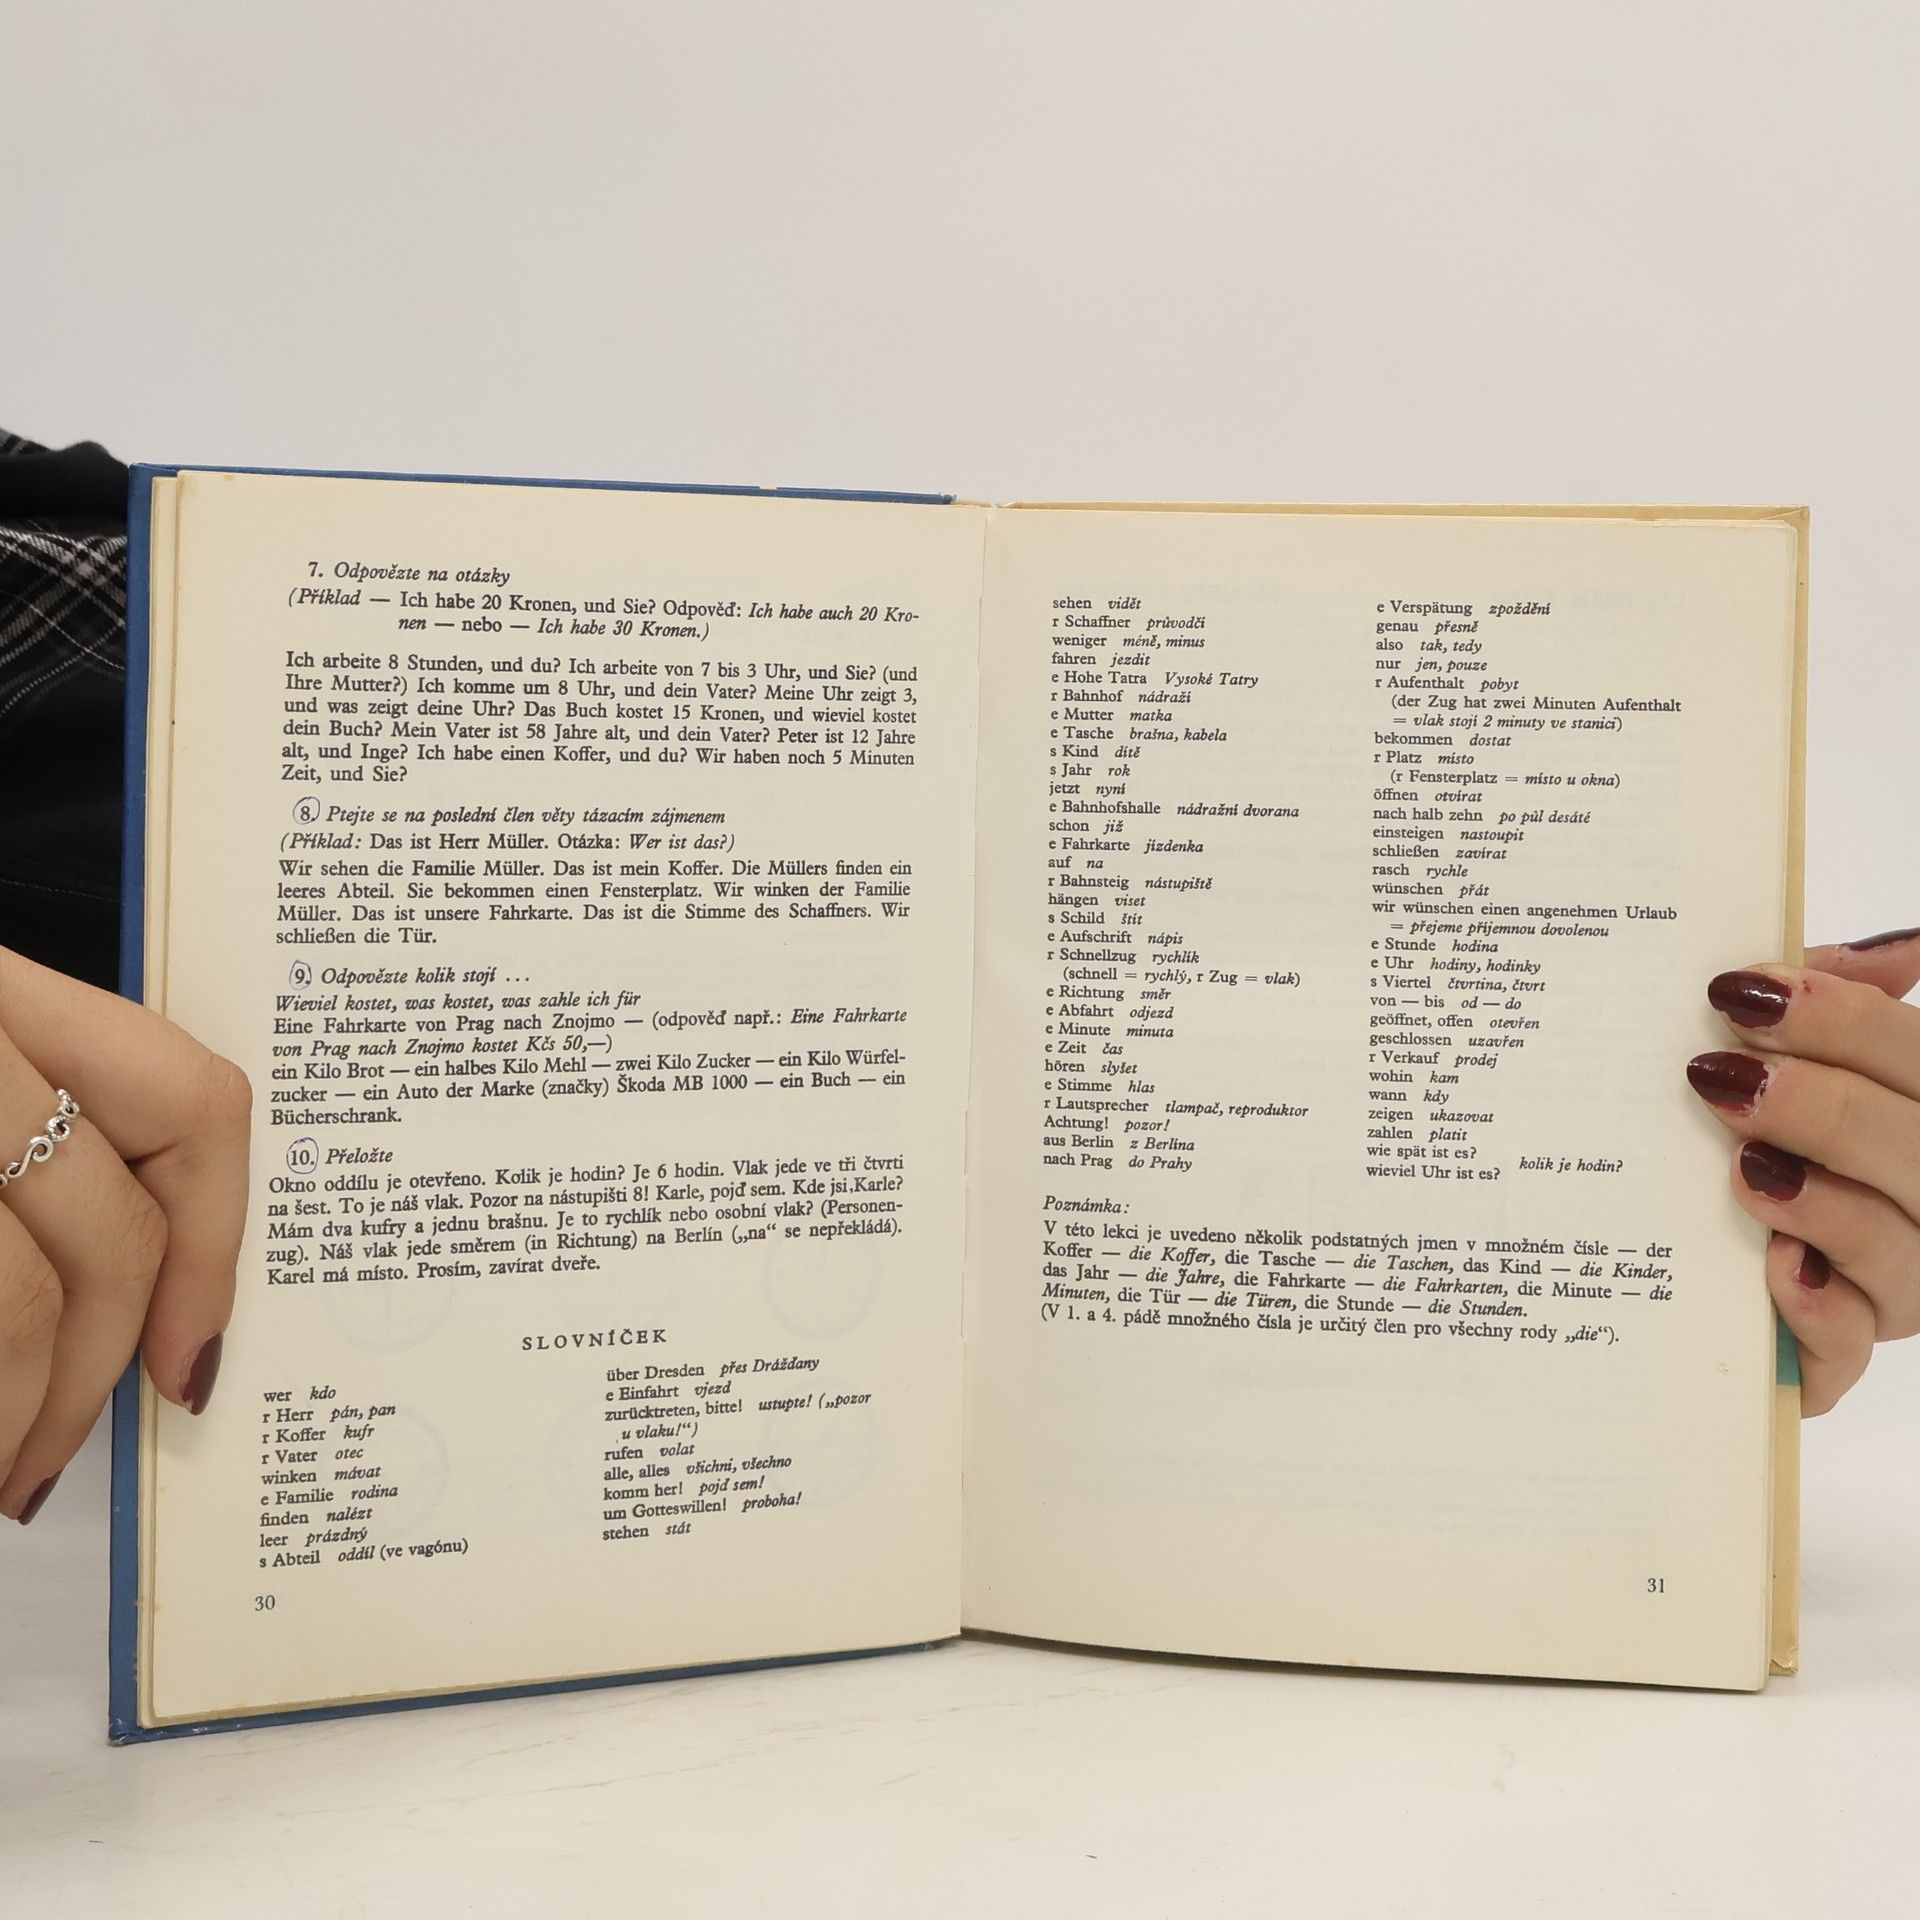 7. Odpovězte na otázky
(Příklad — Ich habe 20 Kronen, und Sie? Odpověď: Ich habe auch 20 Kro-
nen — nebo — Ich habe 30 Kronen.)
Ich arbeite 8 Stunden, und du? Ich arbeite von 7 bis 3 Uhr, und Sie? (und
Ihre Mutter?) Ich komme um 8 Uhr, und dein Vater? Meine Uhr zeigt 3,
und was zeigt deine Uhr? Das Buch kostet 15 Kronen, und wieviel kostet
dein Buch? Mein Vater ist 58 Jahre alt, und dein Vater? Peter ist 12 Jahre
alt, und Inge? Ich habe einen Koffer, und du? Wir haben noch 5 Minuten
Zeit, und Sie?
8. Ptejte se na poslední člen věty tázacím zájmenem
(Příklad: Das ist Herr Müller. Otázka: Wer ist das?)
Wir sehen die Familie Müller. Das ist mein Koffer. Die Müllers finden ein
leeres Abteil. Sie bekommen einen Fensterplatz. Wir winken der Familie
Müller. Das ist unsere Fahrkarte. Das ist die Stimme des Schaffners. Wir
schließen die Tür.
9. Odpovězte kolik stojí ...
Wieviel kostet, was kostet, was zahle ich für
Eine Fahrkarte von Prag nach Znojmo — (odpověď např.: Eine Fahrkarte
von Prag nach Znojmo kostet Kčs 50,—)
ein Kilo Brot — ein halbes Kilo Mehl — zwei Kilo Zucker — ein Kilo Würfel-
zucker — ein Auto der Marke (značky) Škoda MB 1000 — ein Buch — ein
Bücherschrank.
10. Přeložte
Okno oddílu je otevřeno. Kolik je hodin? Je 6 hodin. Vlak jede ve tři čtvrti
na šest. To je náš vlak. Pozor na nástupišti 8! Karle, pojď sem. Kde jsi,Karle?
Mám dva kufry a jednu brašnu. Je to rychlík nebo osobní vlak? (Personen-
zug). Náš vlak jede směrem (in Richtung) na Berlín („na“ se nepřekládá).
Karel má místo. Prosím, zavírat dveře.
SLOVNÍČEK
wer kdo
r Herr pán, pan
r Koffer kufr
r Vater otec
winken mávat
e Familie rodina
finden nalézt
leer prázdný
s Abteil oddíl (ve vagónu)
über Dresden přes Drážďany
e Einfahrt vjezd
zurücktreten, bitte! ustupte! („pozor
u vlaku!“)
rufen volat
alle, alles všichni, všechno
komm her! pojď sem!
um Gotteswillen! proboha!
stehen stát
30
sehen vidět
r Schaffner průvodčí
weniger méně, minus
fahren jezdit
e Hohe Tatra Vysoké Tatry
r Bahnhof nádraží
e Mutter matka
e Tasche brašna, kabela
s Kind dítě
s Jahr rok
jetzt nyní
e Bahnhofshalle nádražní dvorana
schon již
e Fahrkarte jízdenka
auf na
r Bahnsteig nástupiště
hängen viset
s Schild štít
e Aufschrift nápis
r Schnellzug rychlík
(schnell = rychlý, r Zug = vlak)
e Richtung směr
e Abfahrt odjezd
e Minute minuta
e Zeit čas
hören slyšet
e Stimme hlas
r Lautsprecher tlampač, reproduktor
Achtung! pozor!
aus Berlin z Berlína
nach Prag do Prahy
e Verspätung zpoždění
genau přesně
also tak, tedy
nur jen, pouze
r Aufenthalt pobyt
(der Zug hat zwei Minuten Aufenthalt
= vlak stojí 2 minuty ve stanici)
bekommen dostat
r Platz místo
(r Fensterplatz = místo u okna)
öffnen otvírat
nach halb zehn po půl desáté
einsteigen nastoupit
schließen zavírat
rasch rychle
wünschen přát
wir wünschen einen angenehmen Urlaub
= přejeme příjemnou dovolenou
e Stunde hodina
e Uhr hodiny, hodinky
s Viertel čtvrtina, čtvrt
von — bis od — do
geöffnet, offen otevřen
geschlossen uzavřen
r Verkauf prodej
wohin kam
wann kdy
zeigen ukazovat
zahlen platit
wie spät ist es?
wieviel Uhr ist es? kolik je hodin?
Poznámka:
V této lekci je uvedeno několik podstatných jmen v množném čísle — der
Koffer — die Koffer, die Tasche — die Taschen, das Kind — die Kinder,
das Jahr — die Jahre, die Fahrkarte — die Fahrkarten, die Minute — die
Minuten, die Tür — die Türen, die Stunde — die Stunden.
(V 1. a 4. pádě množného čísla je určitý člen pro všechny rody „die“).
31